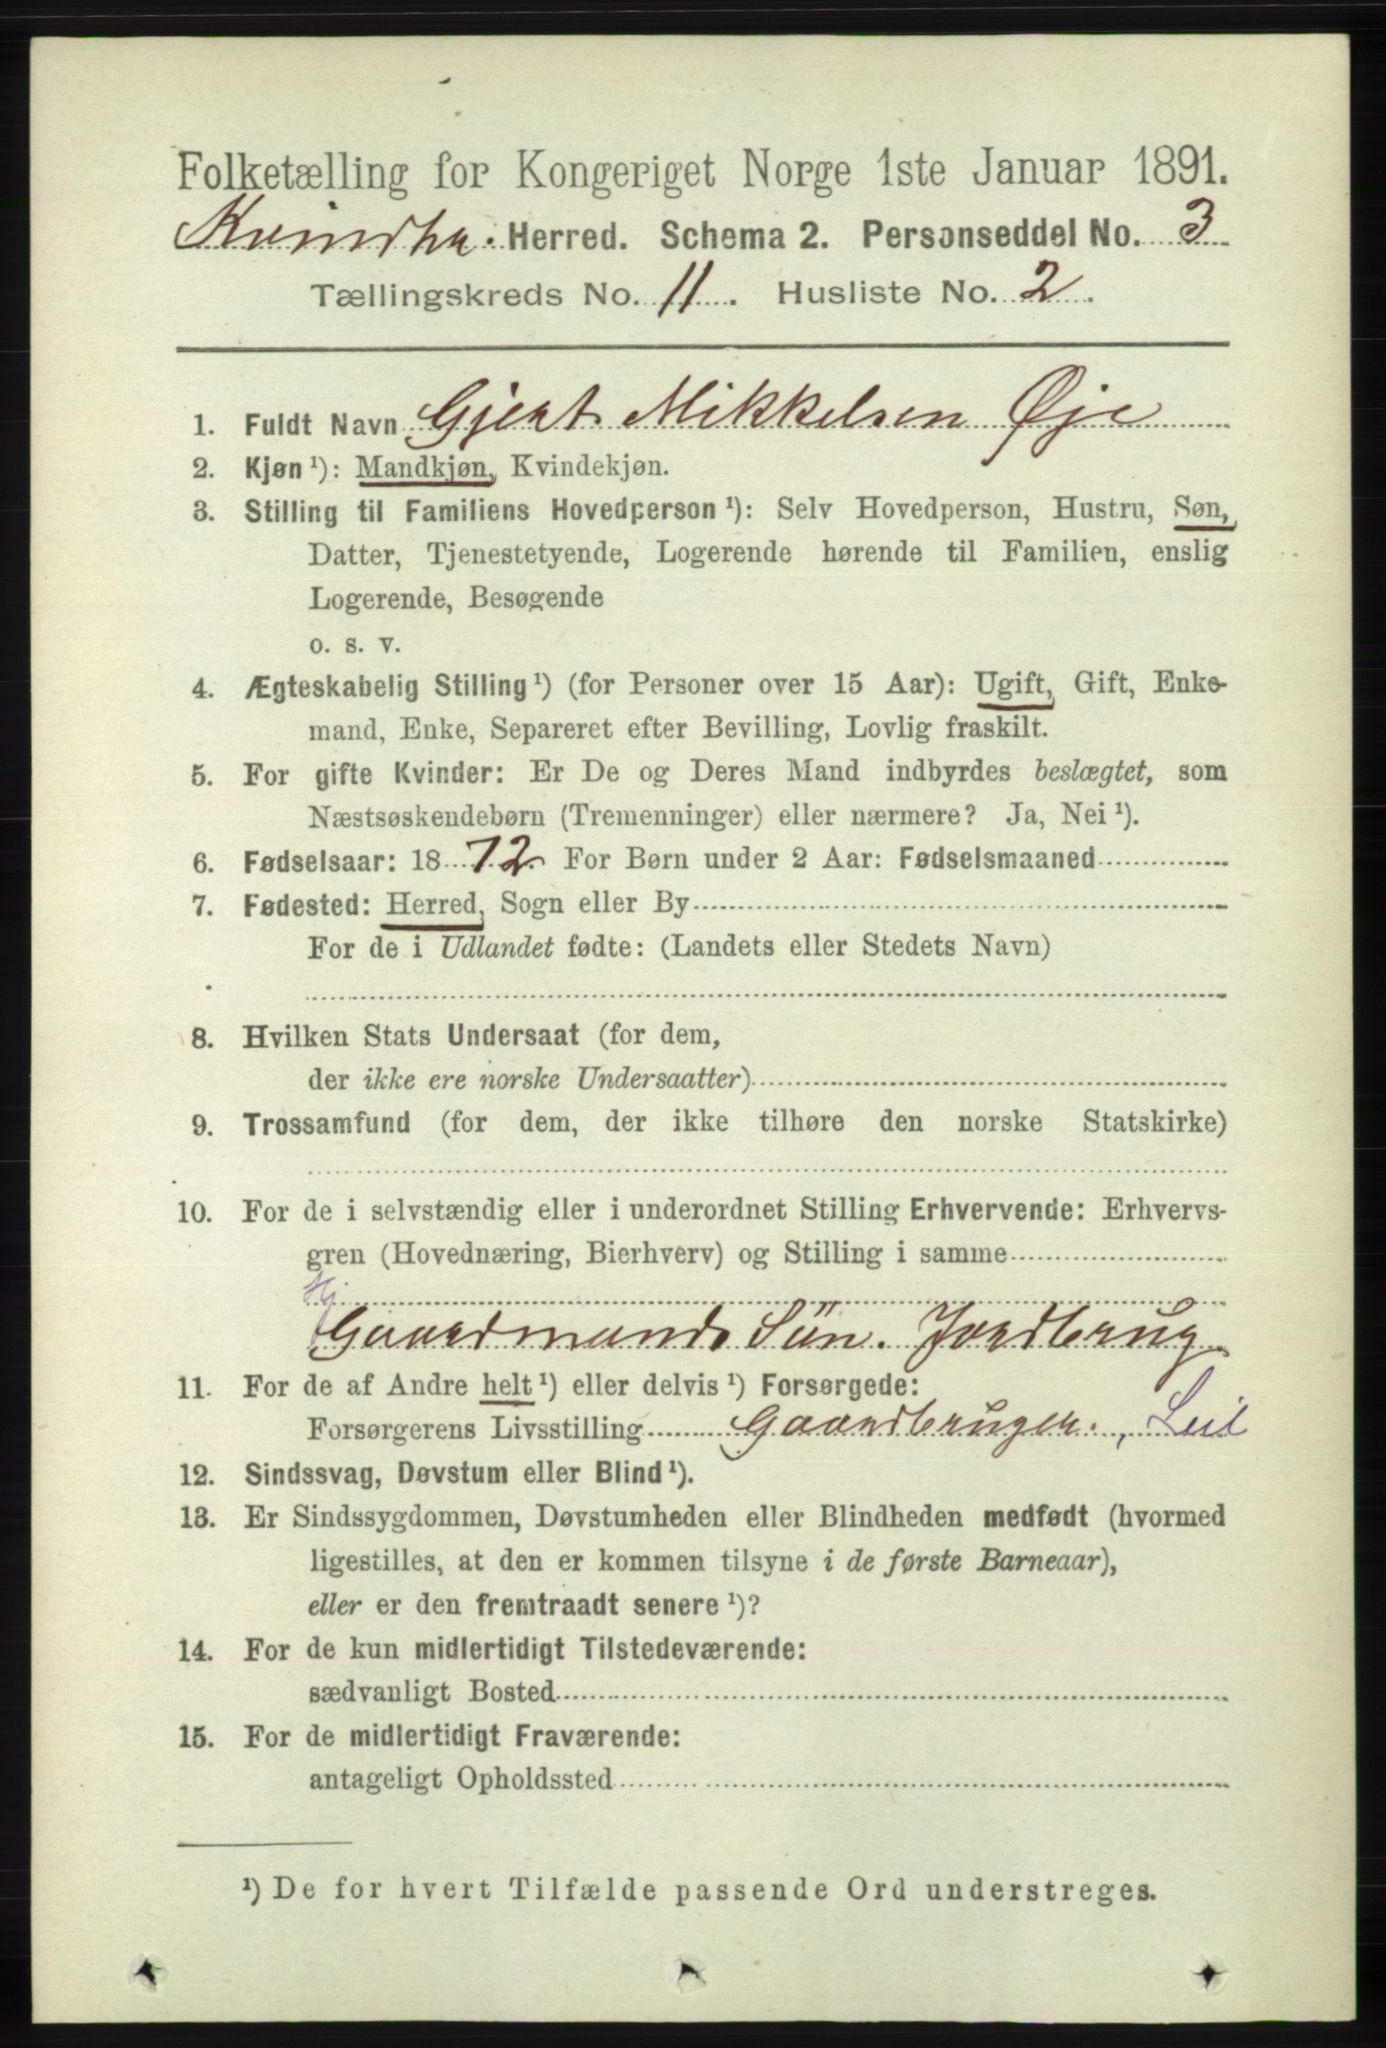 Folketælling for Kongeriget Norge 1ste Januar 1891.
Kvindhr. Herred. Schema 2. Personseddel No. 3
Tællingskreds No. 11. Husliste No. 2.
1. Fuldt Navn Gjert Mikkelsen Øje
2. Kjøn¹): Mandkjøn, Kvindekjøn.
3. Stilling til Familiens Hovedperson¹): Selv Hovedperson, Hustru, Søn,
Datter, Tjenestetyende, Logerende hørende til Familien, enslig
Logerende, Besøgende
o. s. v.
4. Ægteskabelig Stilling¹) (for Personer over 15 Aar): Ugift, Gift, Enke-
mand, Enke, Separeret efter Bevilling, Lovlig fraskilt.
5. For gifte Kvinder: Er De og Deres Mand indbyrdes beslægtet, som
Næstsøskendebørn (Tremenninger) eller nærmere? Ja, Nei¹).
6. Fødselsaar: 1872. For Børn under 2 Aar: Fødselsmaaned
7. Fødested: Herred, Sogn eller By
For de i Udlandet fødte: (Landets eller Stedets Navn)
8. Hvilken Stats Undersaat (for dem,
der ikke ere norske Undersaatter)
9. Trossamfund (for dem, der ikke tilhøre den norske Statskirke)
10. For de i selvstændig eller i underordnet Stilling Erhvervende: Erhvervs-
gren (Hovednæring, Bierhverv) og Stilling i samme
Hj
Gaardmands Sün. Jordbrug
11. For de af Andre helt¹) eller delvis¹) Forsørgede:
Forsørgerens Livsstilling Gaardbruger., Leil
12. Sindssvag, Døvstum eller Blind¹).
13. Er Sindssygdommen, Døvstumheden eller Blindheden medfødt (hvormed
ligestilles, at den er kommen tilsyne i de første Barneaar),
eller er den fremtraadt senere¹)?
14. For de kun midlertidigt Tilstedeværende:
sædvanligt Bosted
15. For de midlertidigt Fraværende:
antageligt Opholdssted
¹) De for hvert Tilfælde passende Ord understreges.